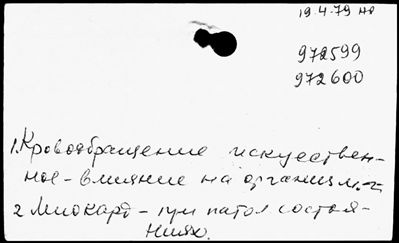 19.4.79 но
972599
972600
1. Кровообращение искуествен-
ное - влияние на организм. -
2 Миокард - при патол состоя-
ниях.